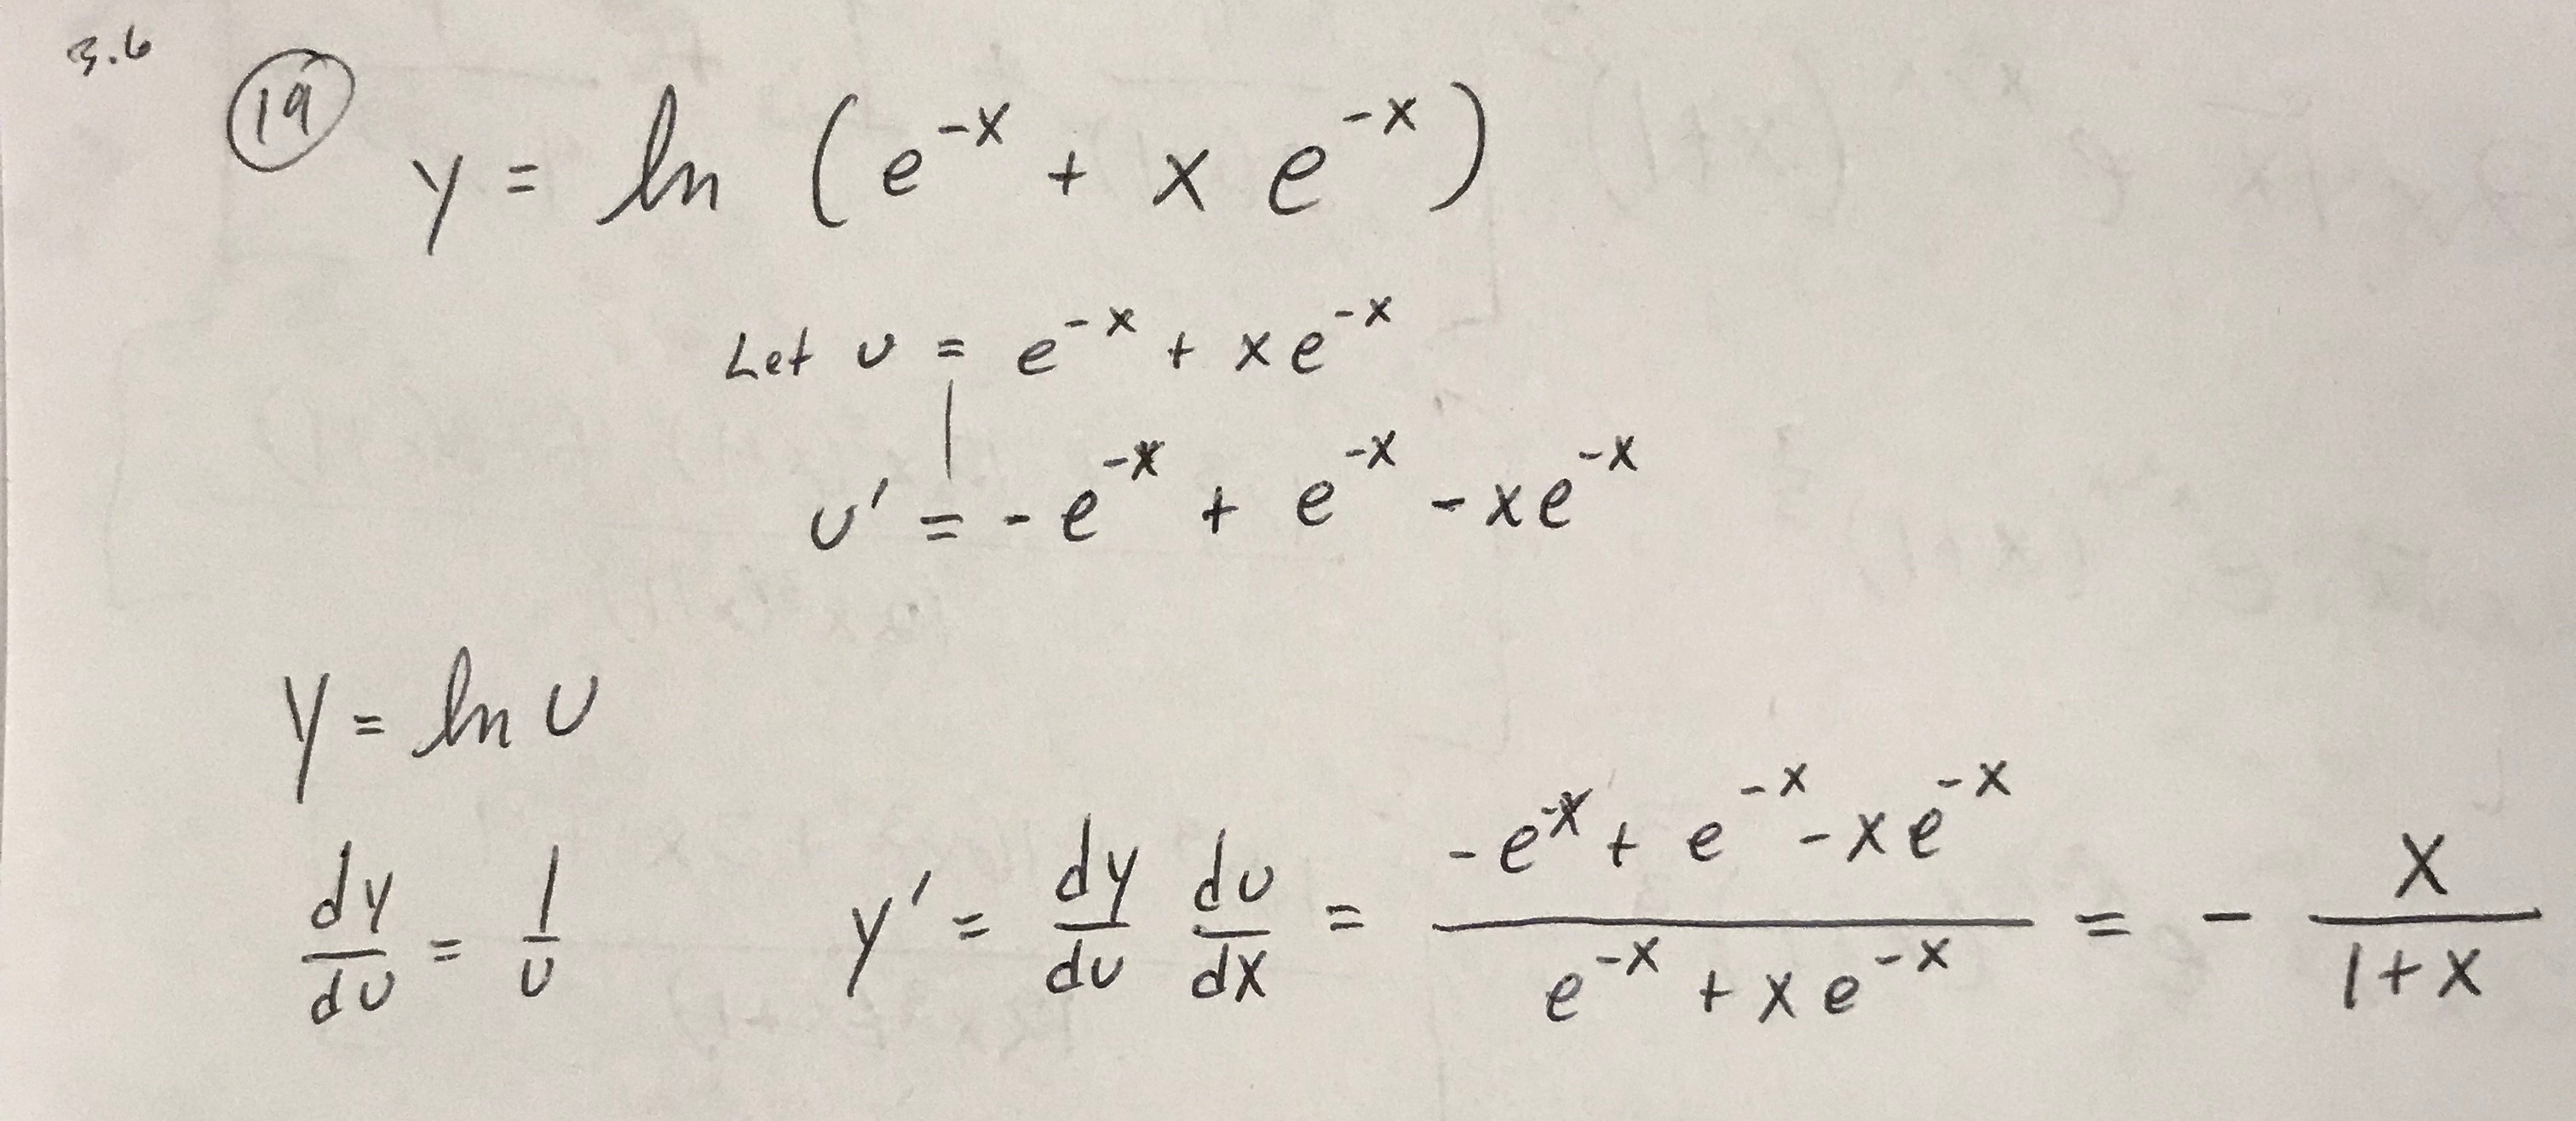 3.6
19 y = ln (e^{-x} + x e^{-x})
Let u = e^{-x} + x e^{-x}
u' = - e^{-x} + e^{-x} - x e^{-x}
y = ln u
dy/du = 1/u    y' = dy/du du/dx = (-e^{-x} + e^{-x} - x e^{-x})/(e^{-x} + x e^{-x}) = - x/(1+x)